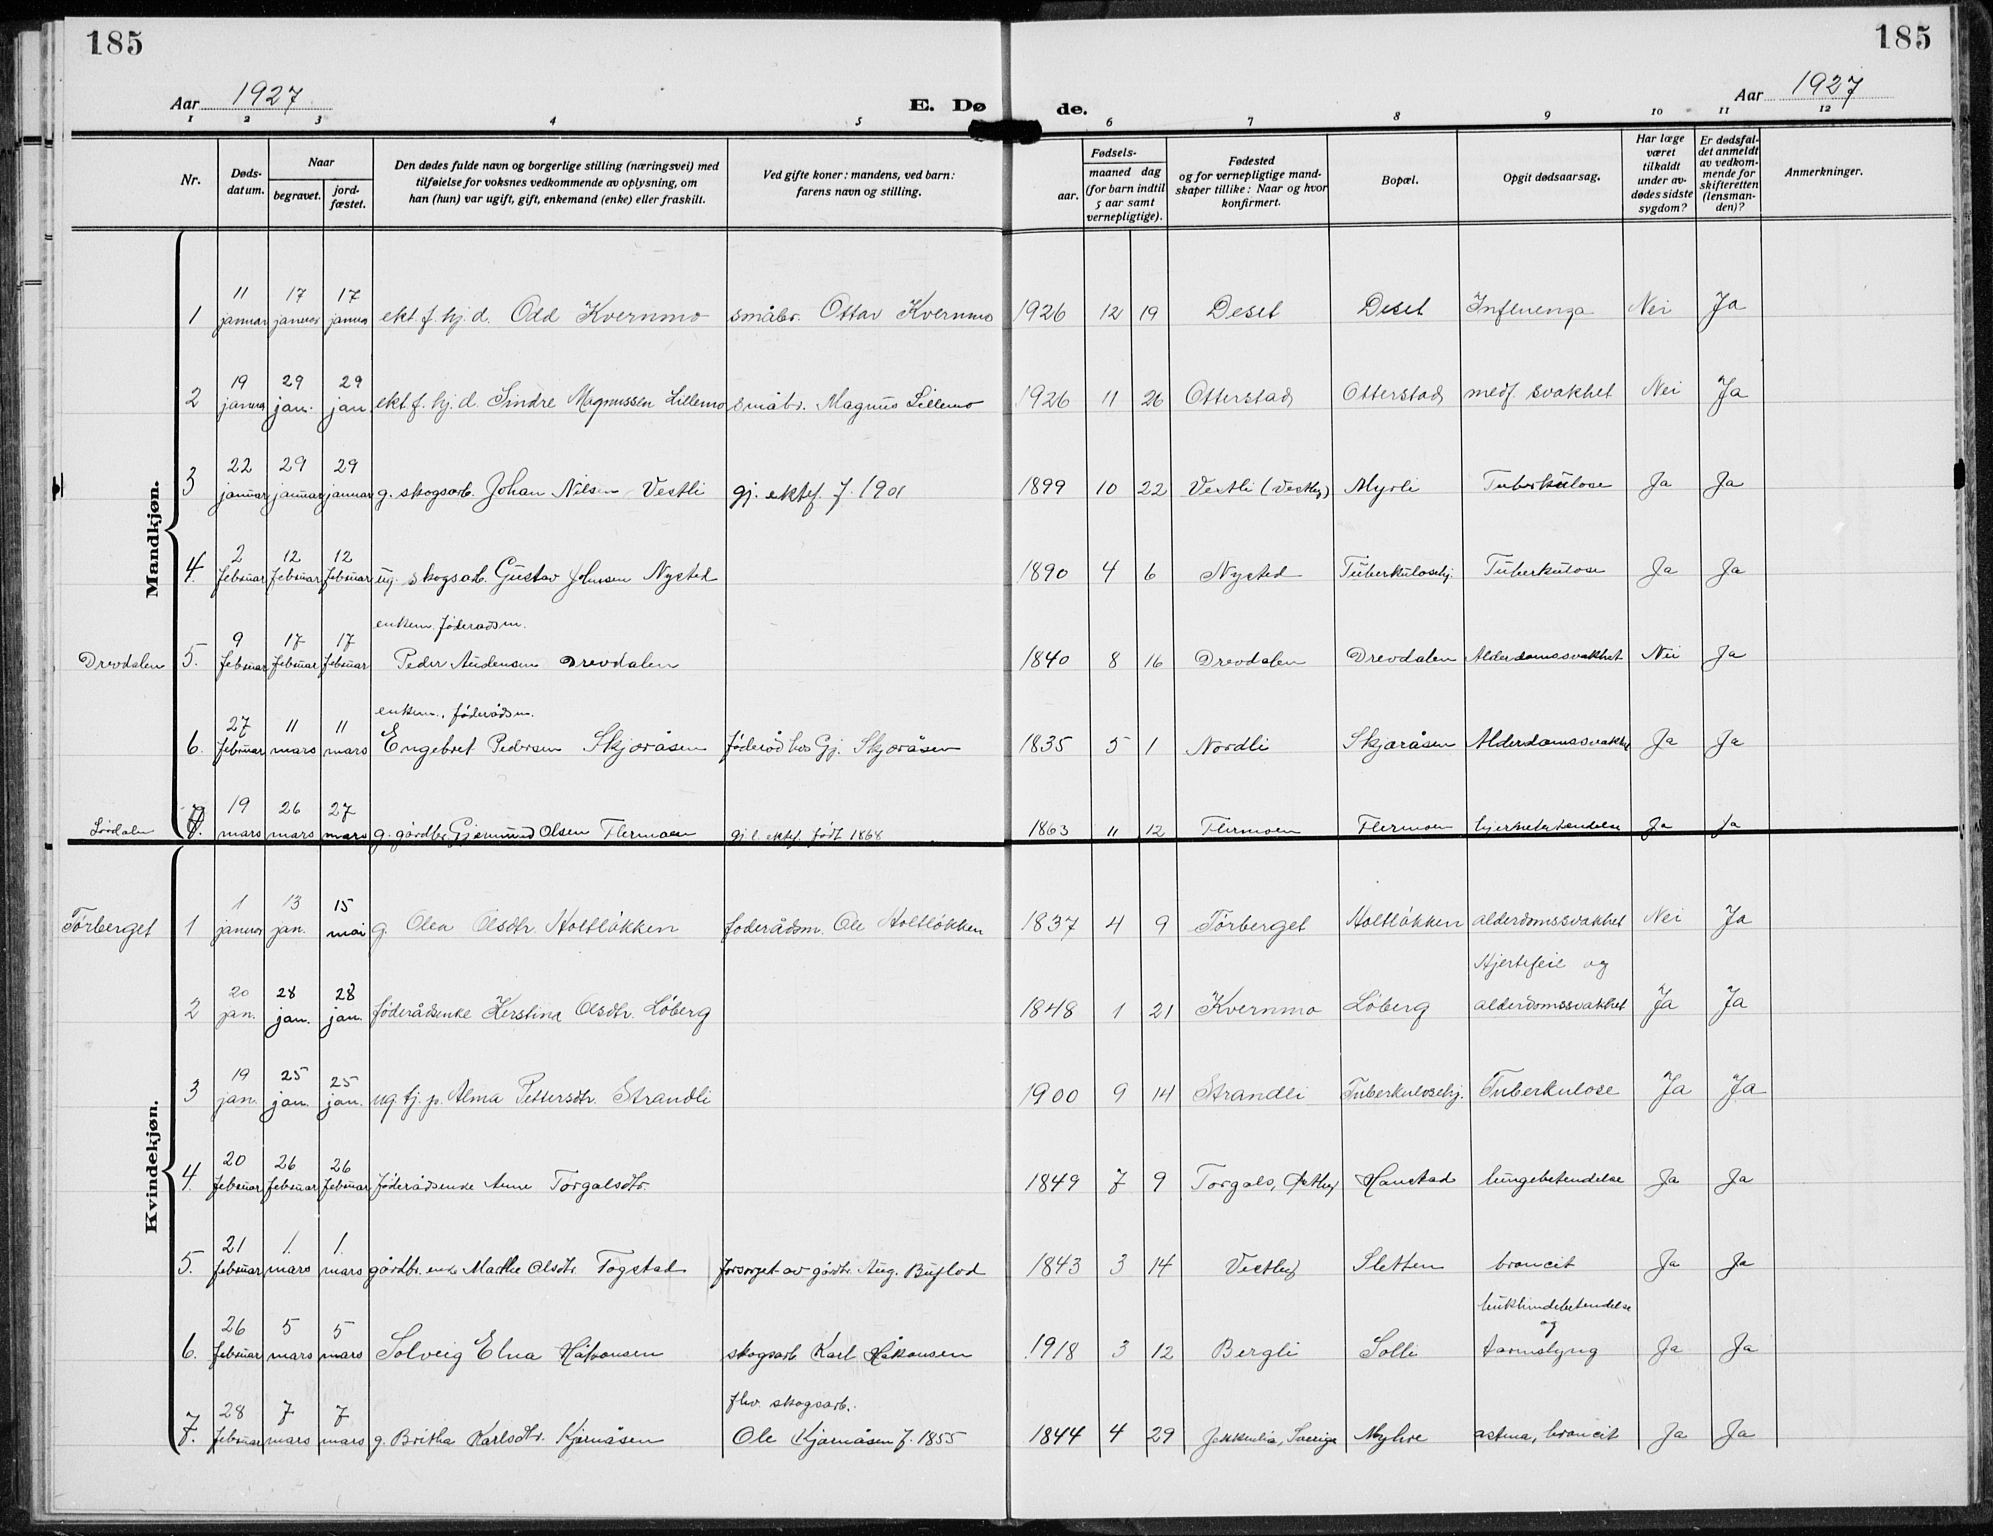 185
185
Aar 1927
E. Dø de.
Aar 1927
1 2 3 4 5 6 7 8 9 10 11 12
Nr.
Døds-
datum.
Naar
begravet.
jord-
fæstet.
Den dødes fulde navn og borgerlige stilling (næringsvei) med
tilføielse for voksnes vedkommende av oplysning, om
han (hun) var ugift, gift, enkemand (enke) eller fraskilt.
Ved gifte koner: mandens, ved barn:
farens navn og stilling.
Fødsels-
aar.
maaned dag
(for barn indtil
5 aar samt
vernepligtige).
Fødested
og for vernepligtige mand-
skaper tillike: Naar og hvor
konfirmert.
Bopæl.
Opgit dødsaarsag.
Har læge
været
tilkaldt
under av-
dødes sidste
sygdom?
Er dødsfal-
det anmeldt
av vedkom-
mende for
skifteretten
(lensman-
den)?
Anmerkninger.
Mandkjøn.
11 17 17
1 januar januar januar ekt. f. hj. d. Odd Kvernmo småbr. Ottar Kvernmo 1926 12 19 Deset Deset Influenza Nei Ja
19 29 29
2 januar jan. jan. ekt. f. hj. d. Sindre Magnussen Lillemo småbr. Magnus Lillemo 1926 11 26 Otterstad Otterstad medf. svakhet Nei Ja
22 29 29
3 januar januar januar g. skogsarb. Johan Nilsen Vestli gj. ektef. f. 1901 1899 10 22 Vestli (Vestby) Myrli Tuberkulose Ja Ja
2 12 12
4. februar februar februar ug. skogsarb. Gustav Johnsen Nysted 1890 4 6 Nysted Tuberkulosehj. Tuberkulose Ja Ja
enkem. føderådsm.
9 17 17
Drevdalen 5. februar februar februar Peder Audensen Drevdalen 1840 8 16 Drevdalen Drevdalen Alderdomssvakhet Nei Ja
enkem., føderådsm.
27 11 11
6. februar mars mars Engebret Pedersen Skjæråsen føderåd hos Gj. Skjæråsen 1835 5 1 Nordli Skjæråsen Alderdomssvakhet Ja Ja
19 26 27
Lørdalen 7. mars mars mars g. gårdbr. Gjermund Olsen Flermoen gj. l. ektef. født 1868 1863 11 12 Flermoen Flermoen hjernebetendelse Ja Ja
Kvindekjøn.
1 13 15
Tørberget 1 januar jan. mai g. Olea Olsdtr. Holtløkken føderådsm. Ole Holtløkken 1837 4 9 Tørberget Holtløkken alderdomssvakhet Nei Ja
Hjertefeil og
20 28 28
2 jan. jan. jan. føderådsenke Kerstina Olsdtr. Løberg 1848 1 21 Kvernmo Løberg alderdomssvakhet Ja Ja
19 25 25
3 jan. jan. jan. ug. tj. p. Alma Pettersdtr. Strandli 1900 9 14 Strandli Tuberkulosehj. Tuberkulose Ja Ja
20 26 26
4. februar februar februar føderådsenke Anne Torgalsdtr. 1849 7 9 Torgals, Østby Hanstad lungebetendelse Ja Ja
21 1. 1.
5. februar mars mars gårdbr. enke Marthe Olsdtr Togstad forsørget av gårdbr. Aug. Buflod 1843 3 14 Vestby Sletten broncit Ja Ja
bukhindebetendelse
og
26 5 5
6. februar mars mars Solveig Elna Håkonsen skogsarb. Karl Håkonsen 1918 3 12 Bergli Solli tarmslyng Ja Ja
fhv. skogsarb.
28 7 7
7. februar mars mars g. Britha Karlsdtr. Kjærnåsen Ole Kjærnåsen f. 1855 1844 4 29 Sverige Myhre astma, broncit Ja Ja